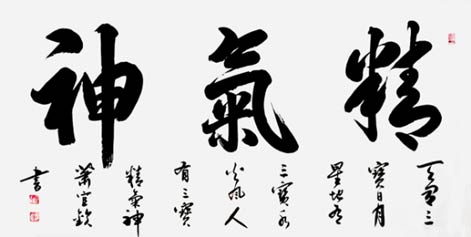 精氣神
天有三
寶日月
星地有
三寶水
火風人
有三寶
精氣神
書